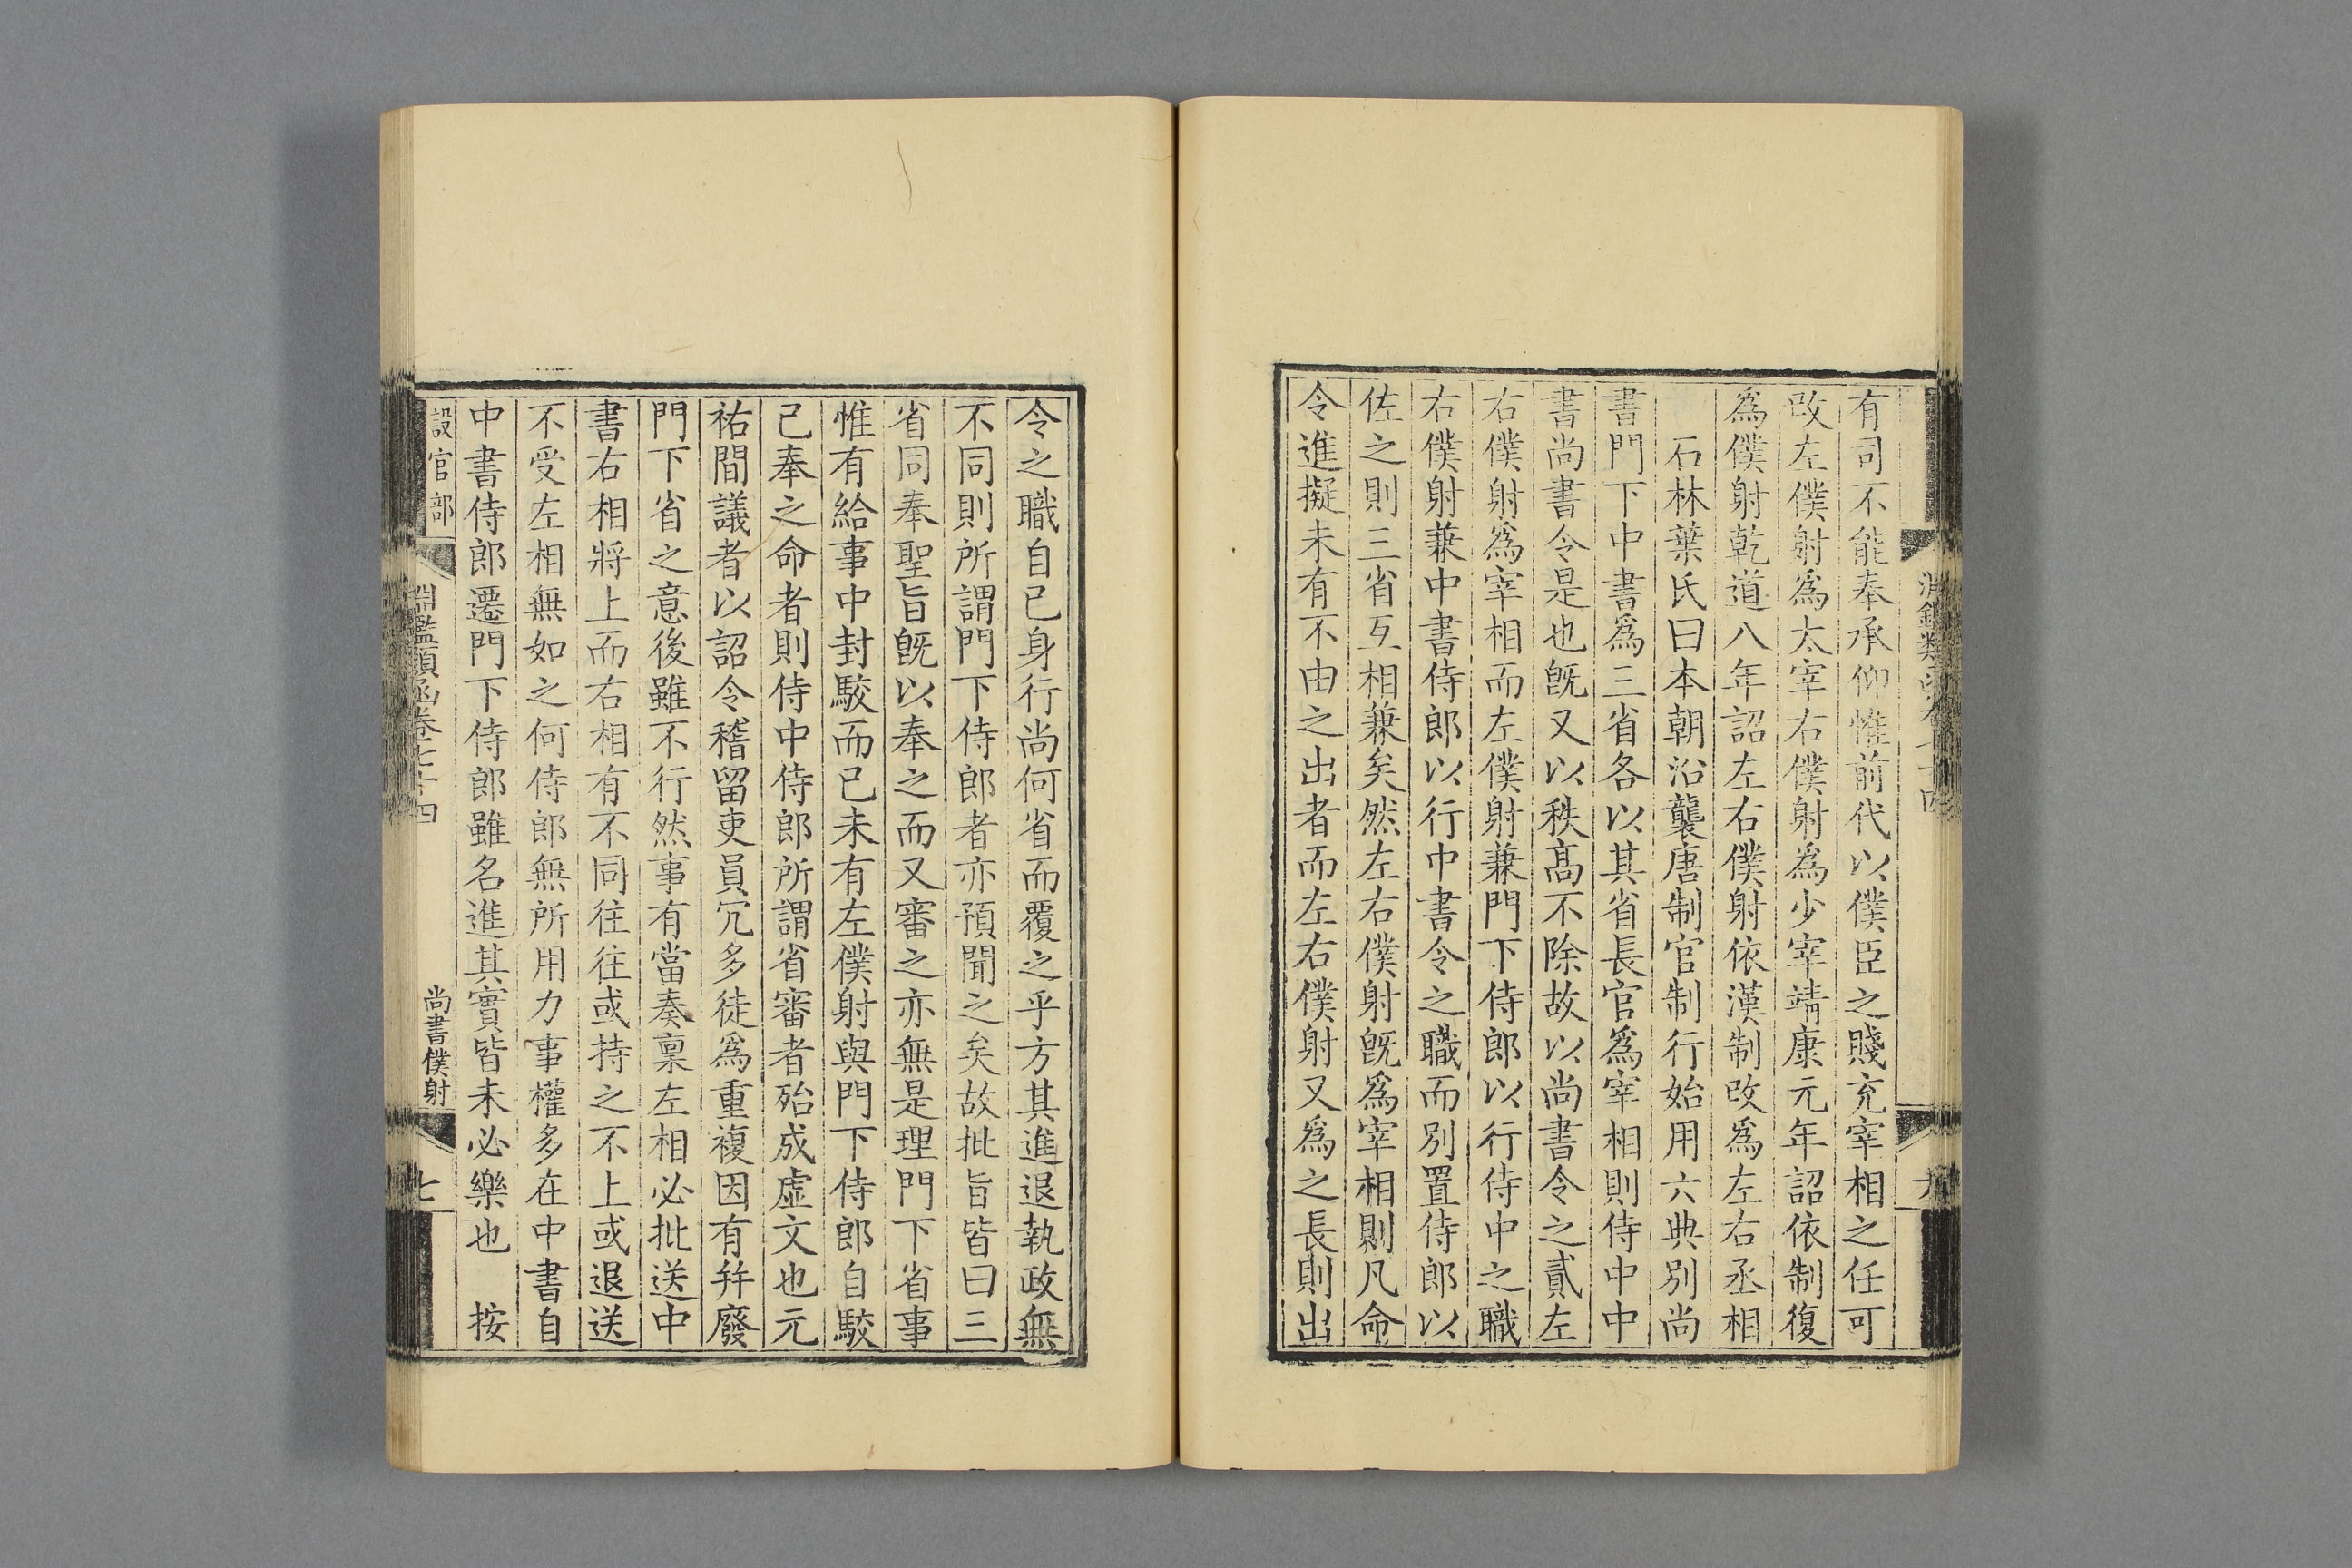 有司不能奉承仰惟前代以僕臣之賤充宰相之任可
攺左僕射爲太宰右僕射爲少宰靖康元年詔依制復
爲僕射乾道八年詔左右僕射依漢制攺爲左右丞相
石林葉氏曰本朝沿襲唐制官制行始用六典別尚
書門下中書爲三省各以其省長官爲宰相則侍中中
書尚書令是也旣又以秩髙不除故以尚書令之貳左
右僕射爲宰相而左僕射兼門下侍郎以行侍中之職
右僕射兼中書侍郎以行中書令之職而別置侍郎以
佐之則三省互相兼矣然左右僕射旣爲宰相則凡命
令進擬未有不由之出者而左右僕射又爲之長則出
令之職自已身行尚何省而覆之乎方其進退執政無
不同則所謂門下侍郎者亦預聞之矣故批旨皆曰三
省同奉聖旨旣以奉之而又審之亦無是理門下省事
惟有給事中封駮而已未有左僕射與門下侍郎自駮
已奉之命者則侍中侍郎所謂省審者殆成虛文也元
祐間議者以詔令稽留吏員冗多徒爲重複因有并廢
門下省之意後雖不行然事有當奏稟左相必批送中
書右相將上而右相有不同往往或持之不上或退送
不受左相無如之何侍郎無所用力事權多在中書自
中書侍郎遷門下侍郎雖名進其實皆未必樂也　按
設官部
淵鑑類函卷七十四
尚書僕射
七